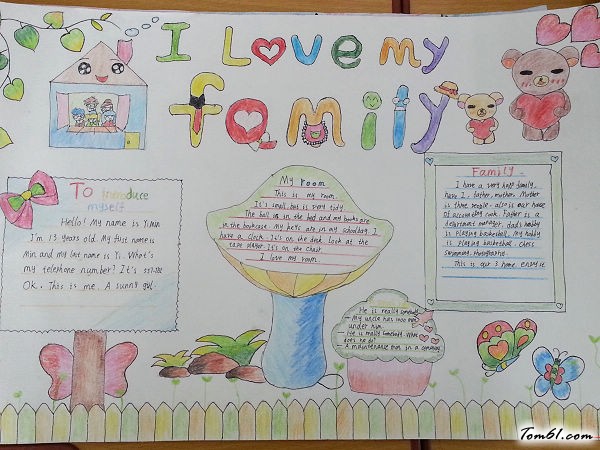 I Love my
family
To introduce
myself
Hello! My name is Yimin
I'm 13 years old. My first name is
Min and my last name is Yi. What's
my telephone number? It's
OK. This is me. A sunny girl.
My room
This is my room.
It's small but is very tidy.
The ball is in the bed and my books are
in the bookcase. My keys are in my schoolbag. I
have a clock. It's on the desk. Look at the
tape player. It's on the chair.
I love my room.
Family
I have a very happy family,
have I, father, mother. Mother
is three people. all is our house
of accounting cook. Father is a
department manager, dad's hobby
is playing basketball. My hobby
is playing basketball, chess
swimming, photography.
This is our 3 home. enjoy it
He is really somebody
- My uncle has 1000 men
under him.
- He is really somebody. What
does he do?
- A maintenance man in a cemetery.
Tom61.com